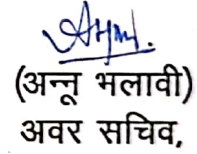 (अन्नू भलावी)
अवर सचिव,